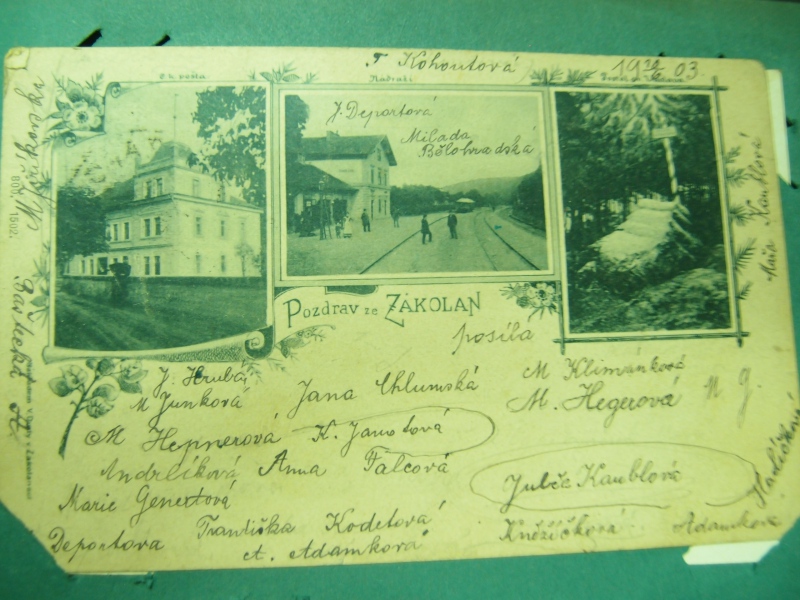 T Kohoutová
1903
C. k. pošta
Nádraží
J. Deportová
Milada
Bělohradská
Pozdrav ze ZÁKOLAN
posílá
J. Hrubá
M Junková
Jana Chlumská
M Klimánková
M. Hegerová
M Hepnerová
K. Janotová
Andrlíková Anna Falcová
Julče Kaublová
Marie Genertová
Františka Kodetová
Deportova
A. Adamková
Kněžíčková
Adamkova
Kaublová
1502.